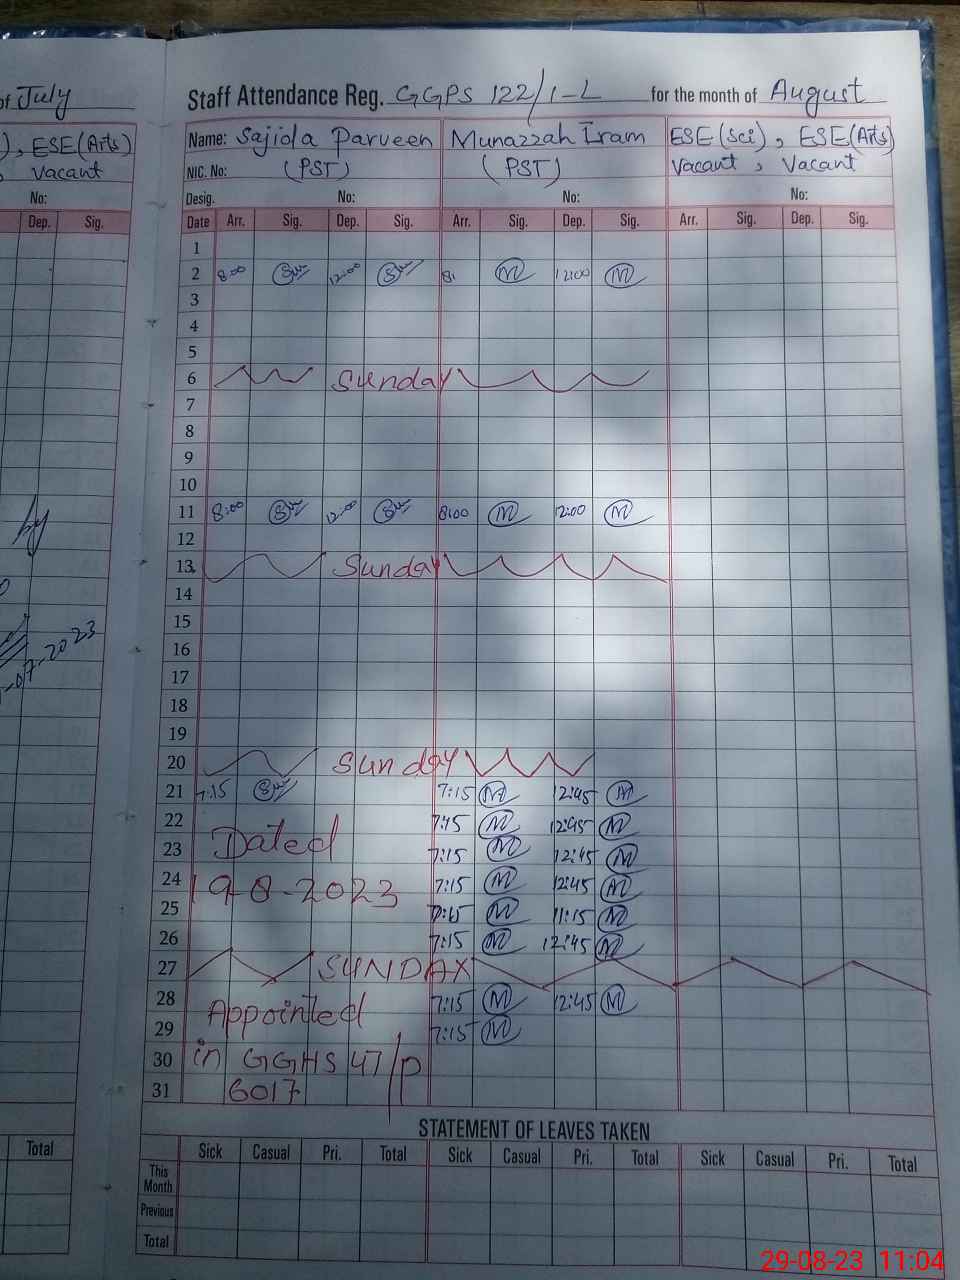 of July
Staff Attendance Reg. GGPS 122/1-L for the month of August
), ESE(Arts)
, Vacant
No:
Dep. Sig.
Name: Sajida Parveen Munazzah Iram ESE(Sci), ESE(Arts)
NIC. No: (PST) (PST) Vacant, Vacant
Desig. No: No: No:
Date Arr. Sig. Dep. Sig. Arr. Sig. Dep. Sig. Arr. Sig. Dep. Sig.
1
2 8:00 12:00 8: M 12:00 M
3
4
5
6 Sunday
7
8
9
10
11 8:00 12:00 8:00 M 12:00 M
12
13 Sunday
14
15
16
17
18
19
20 Sunday
21 7:15 7:15 M 12:45 M
22 7:15 M 12:45 M
23 Dated 7:15 M 12:45 M
24 19-8-2023 7:15 M 12:45 M
25 7:15 M 11:15 M
26 7:15 M 12:45 M
27 SUNDAY
28 Appointed 7:15 M 12:45 M
29 7:15 M
30 in GGHS 47/P
31 6017
-07-2023
STATEMENT OF LEAVES TAKEN
Total
Sick Casual Pri. Total Sick Casual Pri. Total Sick Casual Pri. Total
This Month
Previous
Total
29-08-23 11:04